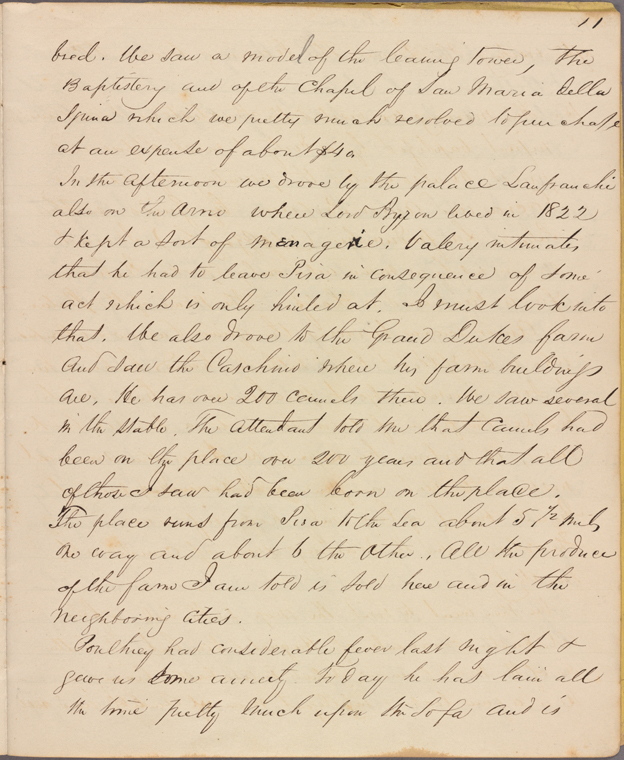 11
bred. We saw a model of the leaning tower, the
Baptistery and of the Chapel of San Maria della
Spina which we pretty much resolved to purchase
at an expense of about $40
In the afternoon we drove by the palace Lanfranchi
also on the Arno where Lord Byron lived in 1822
& kept a sort of menagerie. Valery intimates
that he had to leave Pisa in consequence of some
act which is only hinted at. I must look into
that. We also drove to the Grand Dukes farm
and saw the Caschino where his farm buildings
are. He has over 200 camels there. We saw several
in the stable. The attendant told me that camels had
been on the place over 200 years and that all
of those I saw had been born on the place.
The place runs from Pisa to the Sea about 5 1/2 miles
one way and about 6 the other. All the produce
of the farm I am told is sold here and in the
neighboring cities.
Poultney had considerable fever last night &
gave us some anxiety. To day he has lain all
the time pretty much upon the Sofa and is